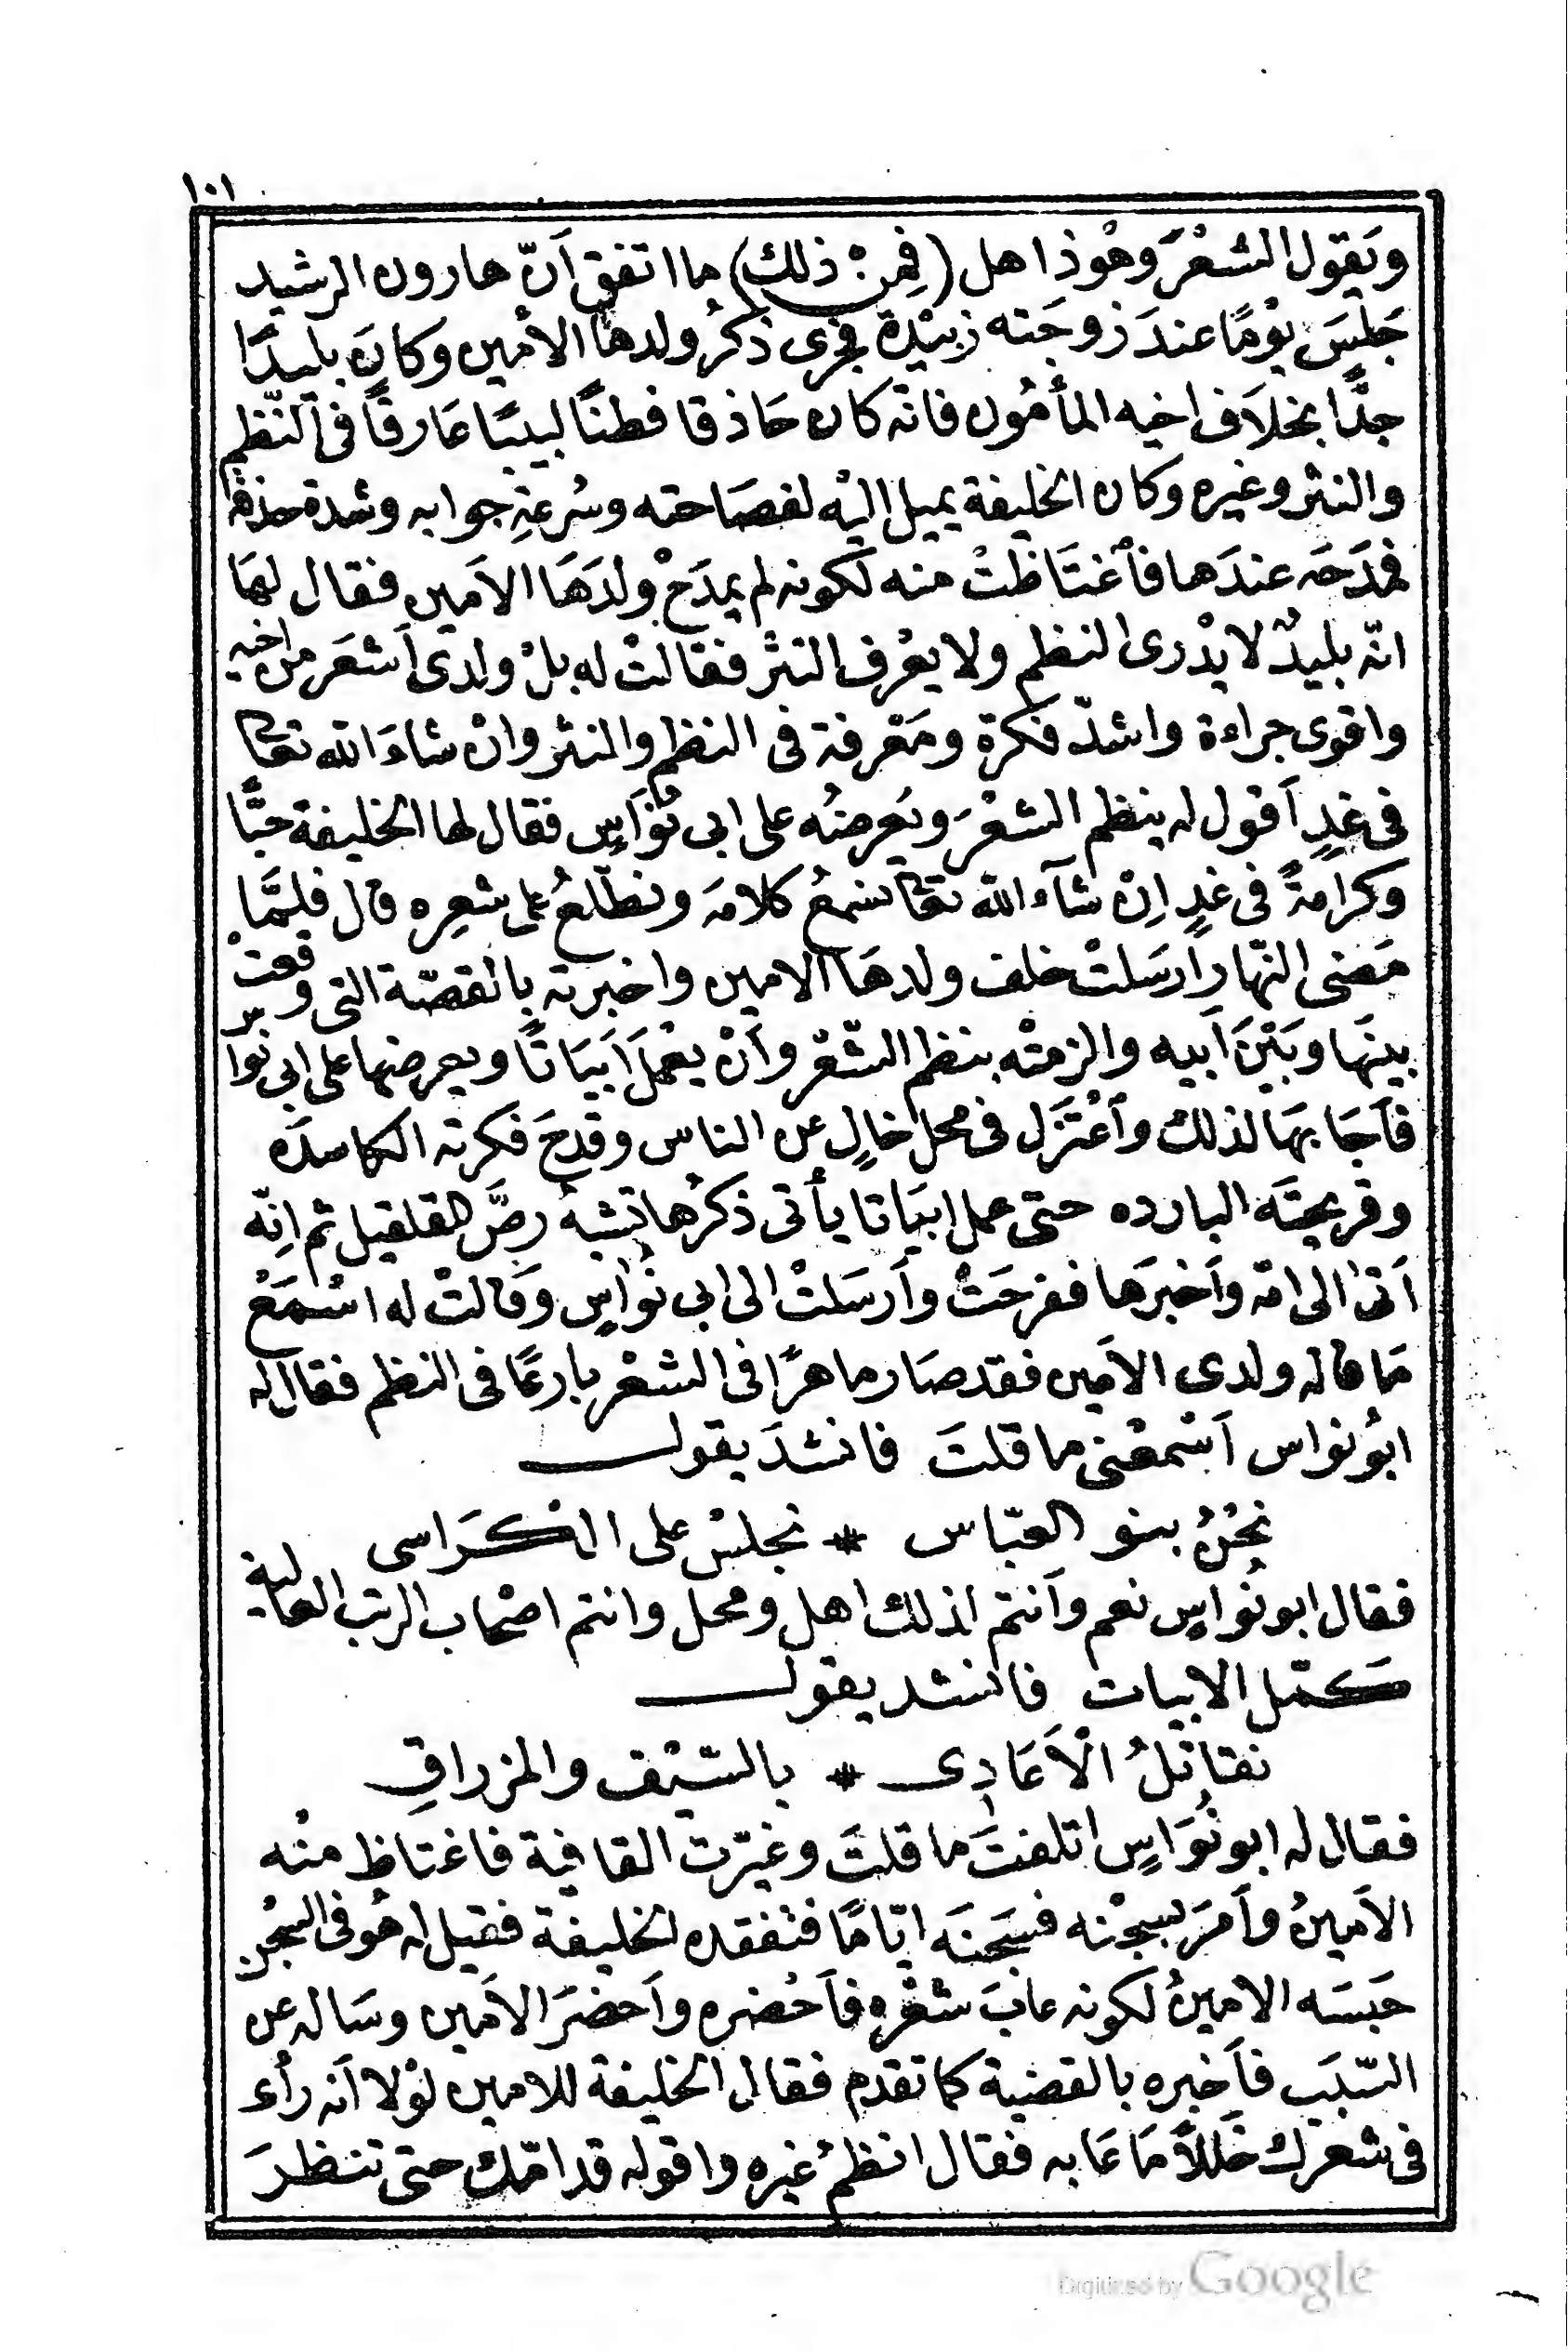 ١٠١
ويَقول الشعْرَ وهُوذاهل (فمِنْ ذلك) ما اتفق اَنّ هارون الرشيد
جَلَسَ يوْمًا عندَ زوجَته زبيْدة فجرى ذكرُ ولدها الامين وكانَ بليدًا
جدًّا بخلاَف اخيه المأمُون فانّه كان حَاذقا فطنًا لبيبًا عَارفًا فى النّظم
والنثر وغيره وكان الخليفة يميل اليْه لفصَاحته وسُرعَةِ جوابه وشدة حذقه
فمدَحَه عندَها فاَغتَاظتْ منه لكونه لم يمدَحْ ولدَهَا الاَمين فقال لهَا
انّه بليدٌ لا يدْرى النظم ولا يعْرف النثر فقالتْ له بلْ ولدى اَشعَر من اخيه
واقوى جراءة واشدّ فكرة ومَعْرفة فى النظم والنثر وانْ شاءَ الله تعَا
فى غدٍ اَقول له ينظم الشعْرَ ويَعرضُه على ابى نُوَاسٍ فقال لها الخليفة حبًّا
وكرامةً فى غدٍ اِنْ شآء الله تعا نسْمعُ كلامَه ونطّلعُ على شعِره قال فلمَّا
مَضى النّهار اَرسَلتْ خلف ولدهَا الامين واخبرته بالقصّة التى وقعتْ
بينَها وبَيْنَ اَبيه والزمتْه بنظم الشّعْر واَنْ يعْملَ اَبيَاتًا ويعرضها على ابى نُوَاس
فاَجَابهَا لذلك واَعْتَزَل فى محل خالٍ عن الناس وقدحَ فكرته الكاسدَه
وقريحتَه البارده حتى عمل ابيَاتا يأتى ذكرُها تشبهُ رصَّ القلقيل ثم اِنّه
اَتى الى امّه واَخبرَها ففرحَتْ واَرسَلتْ الى ابى نُوَاسٍ وَقالتْ له اسْمَعْ
مَا قاله ولدى الاَمين فقد صَار ماهرًا فى الشعْر بارعًا فى النظم فقال له
ابُونواس اَسْمعْنى ما قلتَ فانشدَ يقول
نحْنُ بنو العبّاس * نجلسْ على الكَرَاسى
فقال ابونُوَاسٍ نعم واَنتم لذلك اهل ومحل وانتم اصْحاب الرتب العالية
كمّل الابيات فانشد يقول
نقاتلُ الْاَعَادِى * بالسّيْف والمزراقِ
فقال له ابونُوَاسٍ اتلفتَ ما قلتَ وغيّرت القافية فاغتاظ منْه
الاَمينُ واَمرَ بسجْنه فسَجنَه ايّامًا فتفقده الخليفة فقيل له هُو فى السجْن
حَبَسَه الامينُ لكونه عابَ شعْره فاَحْضره واَحضرَ الاَمين وسَاله عن
السّبَب فاَخبره بالقضية كما تقدم فقال الخليفة للامين لوْلا اَنه راَى
فى شعرك خَللاً مَا عَابه فقال انظمُ غيره واقوله قدامّك حتى تنظرَ
Digitized by Google